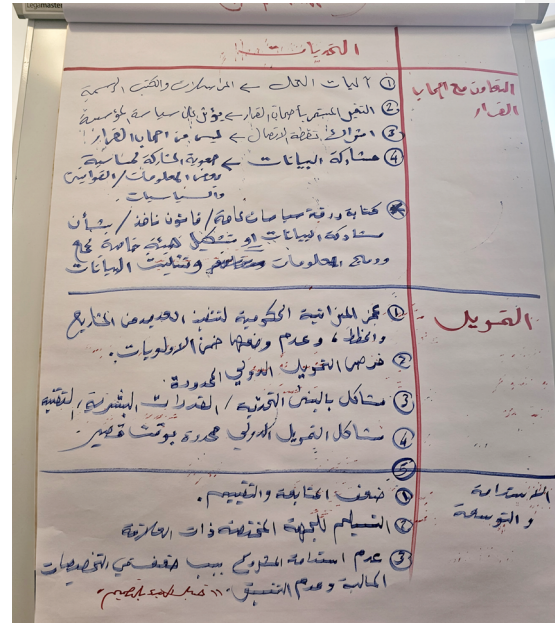 Legamaster
التحديات
التعاون مع اصحاب
القرار
① آليات العمل ← المراسلات والكتب الرسمية
② التغير المستمر بأصحاب القرار ← يؤثر على سياسة المؤسسة
③ اشراك نقطة الاتصال ← ليس من اصحاب القرار
④ مشاركة البيانات ← صعوبة المشاركة لحساسية
بعض المعلومات / القوانين
والسياسات
كتابة ورقة سياسات عامة / قانون نافذ / بشأن
مشاركة البيانات او تشكيل هيئة خاصة بجمع
ودمج المعلومات وتثبيت البيانات
التمويل
① عجز الميزانية الحكومية لتنفيذ العديد من المشاريع
والخطط، وعدم وضعها ضمن الاولويات.
② فرص التمويل الدولي المحدودة
③ مشاكل بالبنى التحتية / القدرات البشرية، التقنية
④ مشاكل التمويل الدولي محددة بوقت قصير
⑤
الاستدامة
و التوسعة
① ضعف المتابعة والتقييم.
② التسليم للجهة المختصة ذات العلاقة
③ عدم استدامة المشروع بسبب ضعف في التخصيصات
المالية وعدم التنسيق.